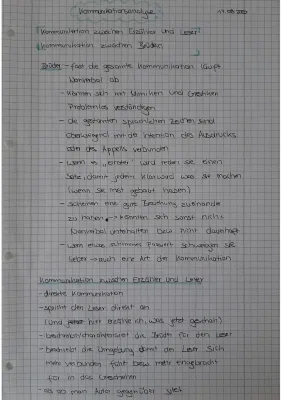 Kommunikationsanalyse
Kommunikation zwischen Erzähler und Leser
Kommunikation zwischen Brüder
Brüder - fast die gesamte Kommunikation läuft
nonverbal ab
- können sich mit Mimiken und Gestiken
Problemlos verständigen
- die gesamten sprachlichen Zeichen sind
überwiegend mit der Intention des Ausdrucks
oder des Appells verbunden
- wenn es "ernster" wird reden sie einen
Satz, damit jedem klar wird was sie machen
(wenn sie mist gebaut haben)
- scheinen eine gute Beziehung zueinander
zu haben → könnten sich sonst nicht
nonverbal unterhalten bzw nicht dauerhaft
- wenn etwas schlimmes passiert schweigen sie
lieber → auch eine Art der Kommunikation
Kommunikation zwischen Erzähler und Leser
- direkte Kommunikation
- spricht den Leser direkt an
(und jetzt erzähle ich, was jetzt geschah)
- beschreibt/charakterisiert die Brüder für den Leser
- beschreibt die Umgebung damit der Leser sich
mehr verbunden fühlt bzw. mehr eingebracht
für in das Geschehen
- Autor gegenüber